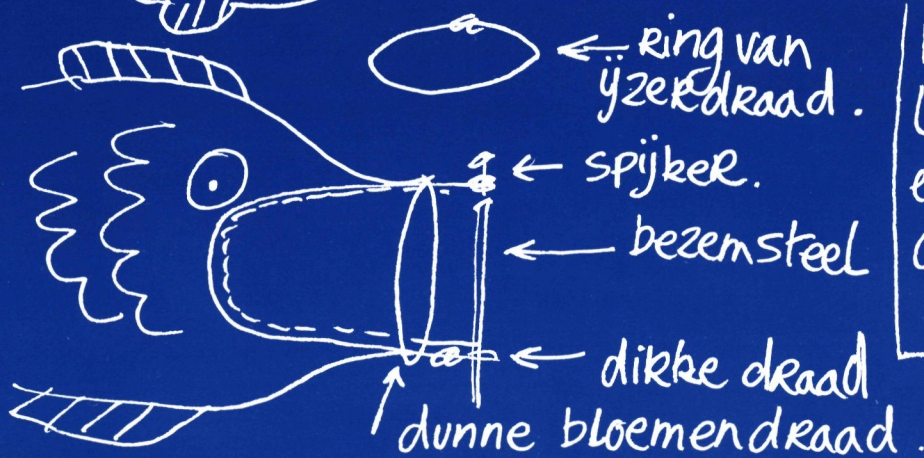 Ring van
ijzerdraad.
spijker.
bezemsteel
dikke draad
dunne bloemendraad.